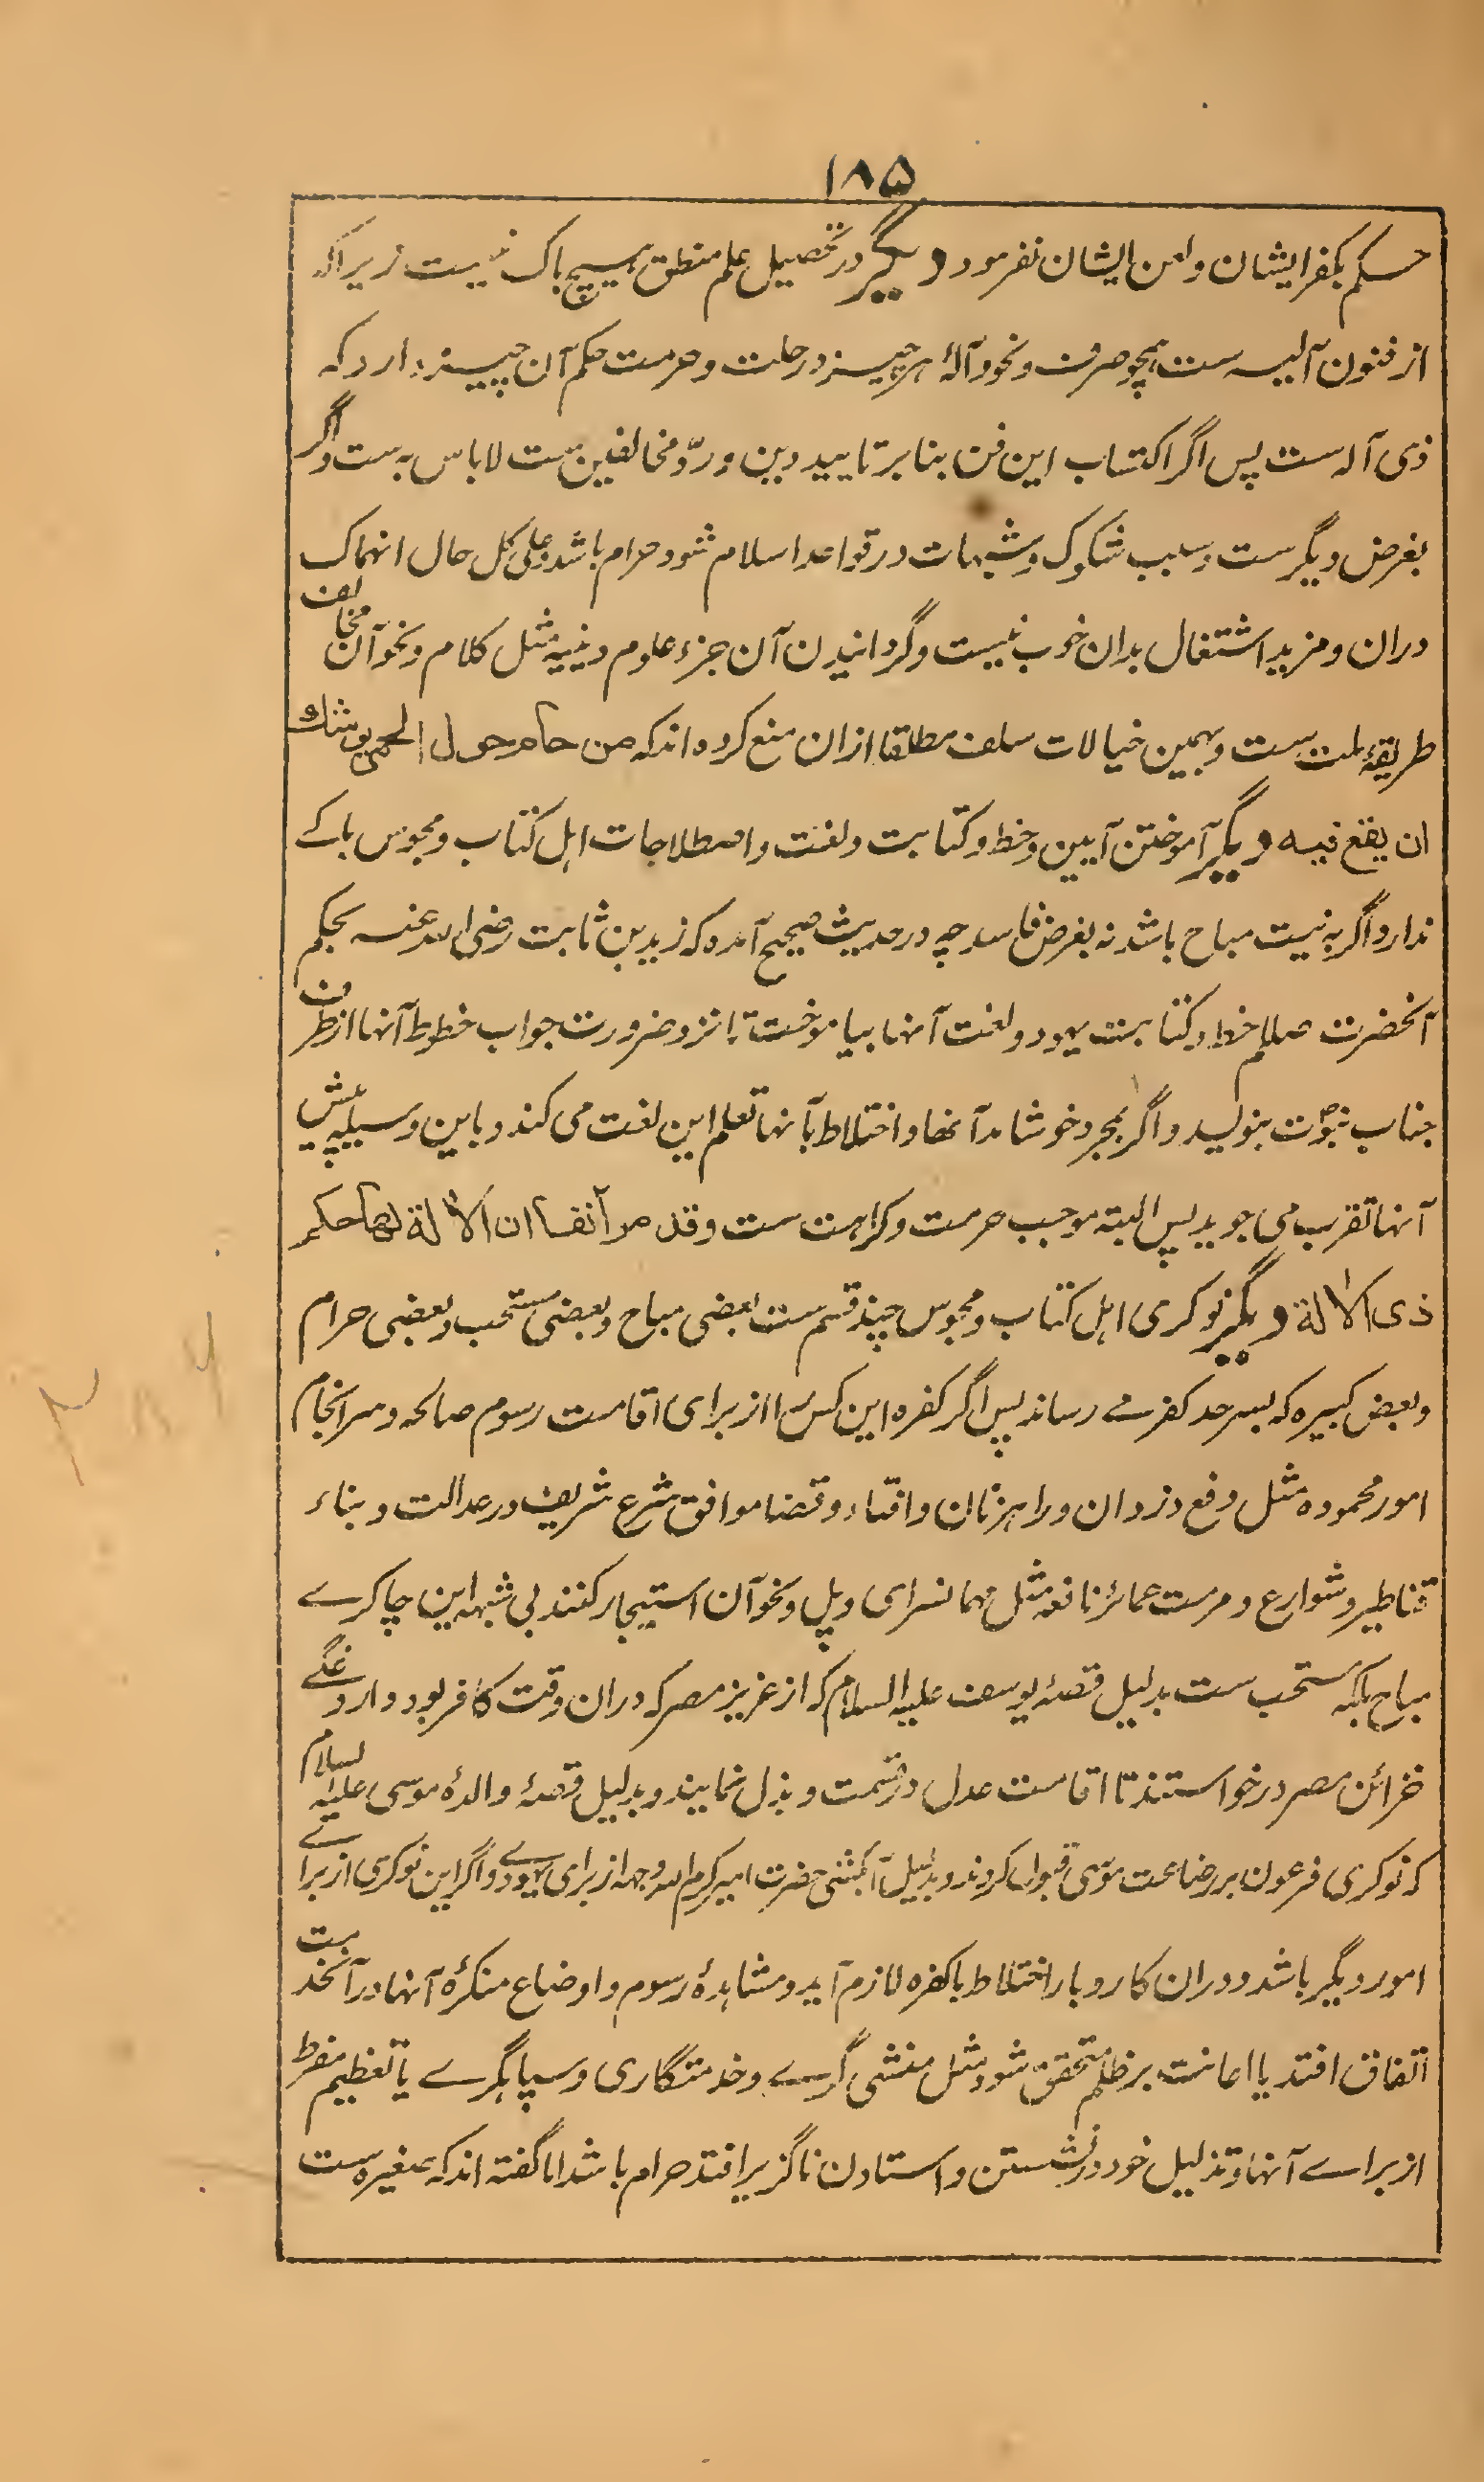 ۱۸۵
حکم بکفر ایشان و لعن ایشان نفرمود دیگر در تحصیل علم منطق هیچ باک نیست زیراکه
از فنون آلیه ست همچو صرف و نحو و آلهٔ هر چیز در حلت و حرمت حکم آن چیز دارد که
ذی آله ست پس اگر اکتساب این فن بنابر تایید دین و ردّ مخالفین ست لاباس به ست و اگر
بغرض دیگر ست و سبب شکوک و شبهات در قواعد اسلام شود حرام باشد و علی کل حال انهماک
دران و مزید اشتغال بدان خوب نیست و گردانیدن آن جزء علوم دینیه مثل کلام و نحو آن مخالف
طریقهٔ ملت ست و بهمین خیالات سلف مطلقا ازان منع کرده اند که من حام حول الحمی یوشک
ان یقع فیه دیگر آموختن آیین و خط و کتابت و لغت و اصطلاحات اهل کتاب و مجوس باکے
ندارد اگر به نیت مباح باشد نه بغرض فاسد چه در حدیث صحیح آمده که زید بن ثابت رضی الله عنه بحکم
آنحضرت صلعم خط و کتابت یهود و لغت آنها بیاموخت تا نزد ضرورت جواب خطوط آنها از طرف
جناب نبوّت بنویسد و اگر بمجرد خوشامد آنها و اختلاط بآنها تعلم این لغت می کند و باین وسیله پیش
آنها تقرب می جوید پس البته موجب حرمت و کراهت ست و قد مر آنفا ان الآلة لها حکم
ذی الآلة دیگر نوکری اهل کتاب و مجوس چند قسم ست بعضی مباح و بعضی مستحب و بعضی حرام
و بعض کبیره که بسرحد کفر مے رساند پس اگر کفره این کس را از برای اقامت رسوم صالحه و سرانجام
امور محموده مثل دفع دزدان و راهزنان و افتاء و قضا موافق شرع شریف در عدالت و بناء
قناطیر و شوارع و مرمت عمائر نافعه مثل مهمانسرای و پل و نحو آن استیجار کنند بی شبهه این چاکرے
مباح بلکه مستحب ست بدلیل قصهٔ یوسف علیه السلام که از عزیز مصر که دران وقت کافر بود داروغگے
خزائن مصر درخواستند تا اقامت عدل در قسمت و بذل نمایند و بدلیل قصهٔ والدهٔ موسی علیه السلام
که نوکری فرعون بر رضاعت موسی قبول کردند و بدلیل آبکشی حضرت امیر کرم الله وجهه از برای یهودے و اگر این نوکری از برائے
امور دیگر باشد و دران کاروبار اختلاط با کفره لازم آید و مشاهدهٔ رسوم و اوضاع منکرهٔ آنها در آنخدمت
اتفاق افتد یا اعانت بر ظلم متحقق شود مثل منشی گرے و خدمتگاری و سپاهگرے یا تعظیم مفرط
از براے آنها و تذلیل خود در نشستن و استادن ناگزیر افتد حرام باشد اما گفته اند که صغیره ست